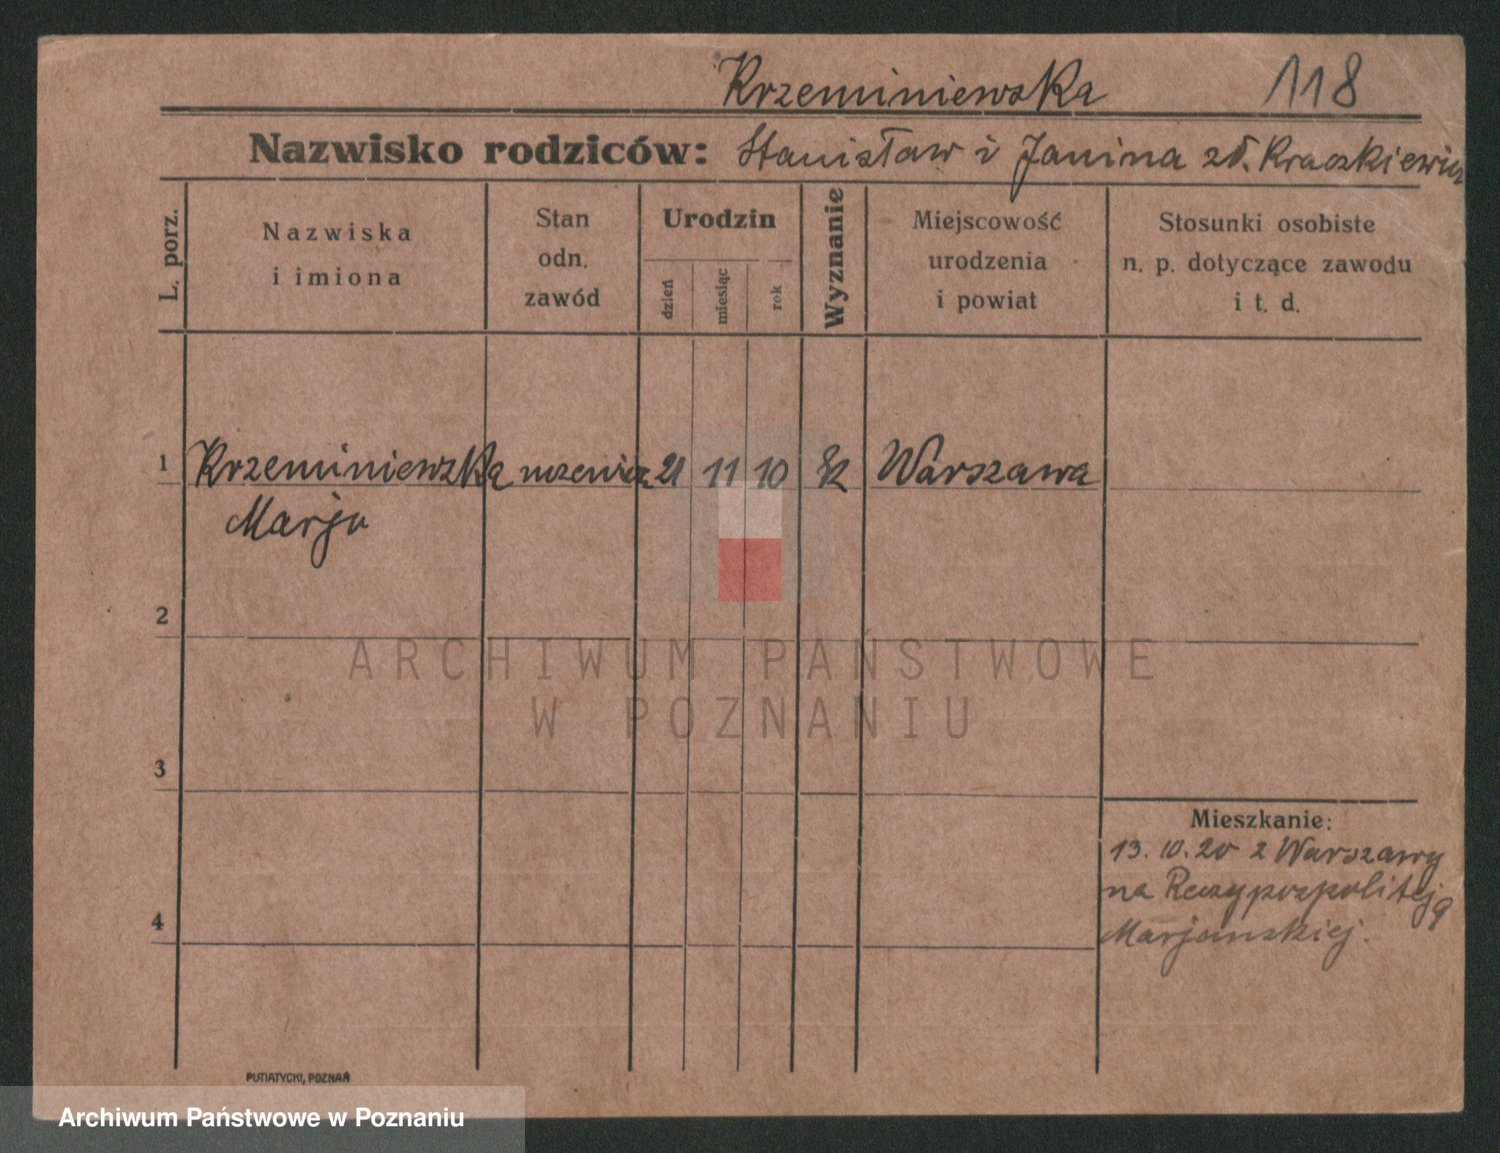 Krzeminiewska 118
Nazwisko rodziców: Stanisław i Janina zd. Kraszkiewicz
L. porz.
Nazwiska
i imiona
Stan
odn.
zawód
Urodzin
dzień
miesiąc
rok
Wyznanie
Miejscowość
urodzenia
i powiat
Stosunki osobiste
n. p. dotyczące zawodu
i t. d.
1 Krzeminiewska 21 11 10 Warszawa
Marja
2
ARCHIWUM PAŃSTWOWE
W POZNANIU
3
Mieszkanie:
13.10.20 z Warszawy
na Rzeczypospolitej 9
4
Marjańskiej.
PUTIATYCKI, POZNAŃ
Archiwum Państwowe w Poznaniu